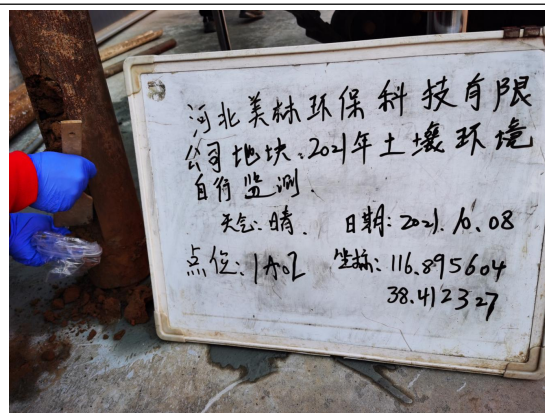 河北美林环保科技有限
公司地块:2021年土壤环境
自行监测.
天气:晴. 日期:2021.10.08
点位:1A02 坐标:116.895604
38.412327